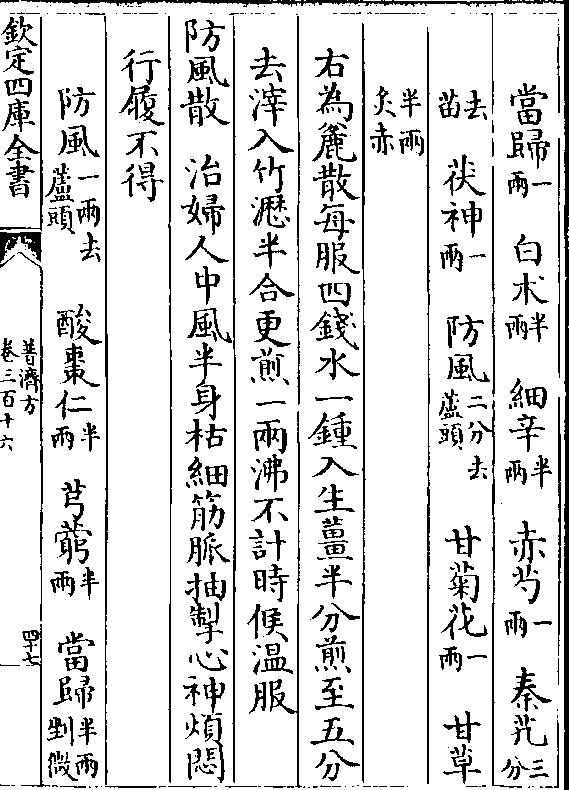 當歸一兩 白朮半兩 細辛半兩 赤芍一兩 秦艽三分
去苗 茯神一兩 防風二分去蘆頭 甘菊花一兩 甘草
半兩炙赤
右為麄散每服四錢水一鍾入生薑半分煎至五分
去滓入竹瀝半合更煎一兩沸不計時候温服
防風散 治婦人中風半身枯細筋脈抽掣心神煩悶
行履不得
防風一兩去蘆頭 酸棗仁半兩 芎藭半兩 當歸半兩剉微
欽定四庫全書
普濟方
卷三百十六
四十七